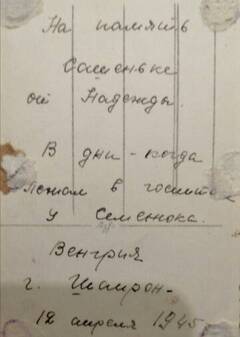 На память
Сашеньке
от Надежды.
В дни - когда
лежал в госпит
у Семенюка.
Венгрия
г. Шопрон-
12 апреля 1945